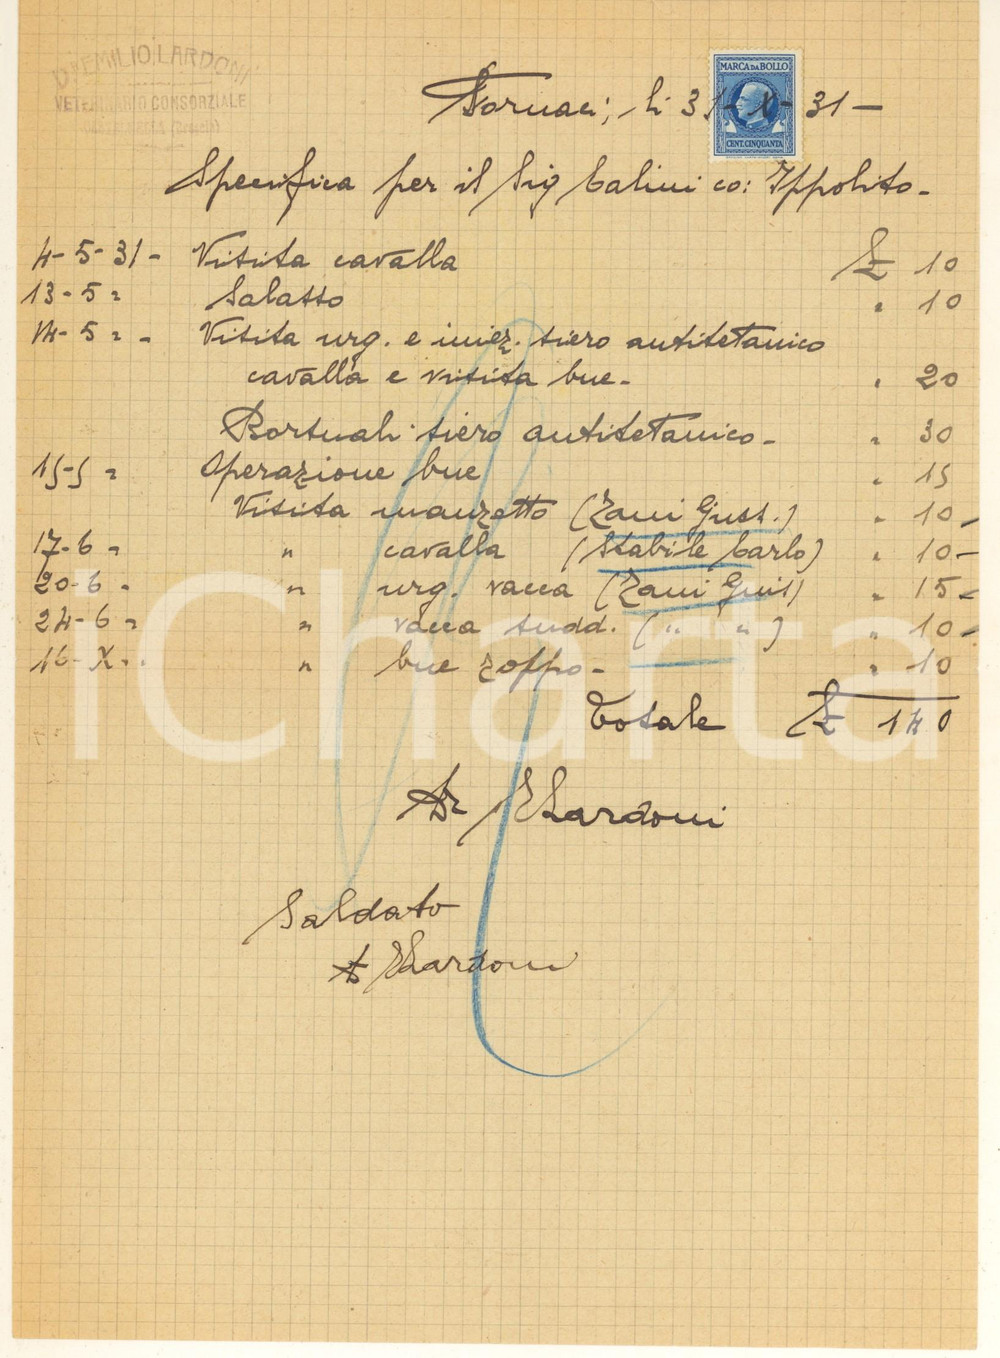 Dr EMILIO LARDONI
VETERINARIO CONSORZIALE
Fornaci, li 31-X-31-
MARCA DA BOLLO
CENT. CINQUANTA
Specifica per il Sig Calini co: Ippolito-
4-5-31- Visita cavalla £ 10
13-5 " Salasso " 10
14-5 " - Visita urg. e iniez. siero antitetanico
cavalla e visita bue- " 20
siero antitetanico- " 30
15-5 " Operazione bue " 15
Visita manzetto (Zani Gius.) " 10-
17-6 " " cavalla (Stabile Carlo) " 10-
20-6 " " urg. vacca (Zani Gius) " 15-
24-6 " " vacca sudd. ( " " ) " 10-
16-X- " bue zoppo- " 10
Totale £ 140
Dr ELardoni
Saldato
Dr ELardoni
iCharta